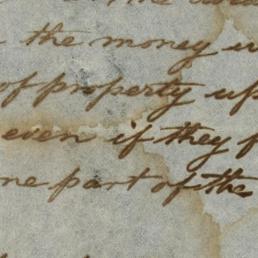 the money
of property up
even if they f
ne part of the